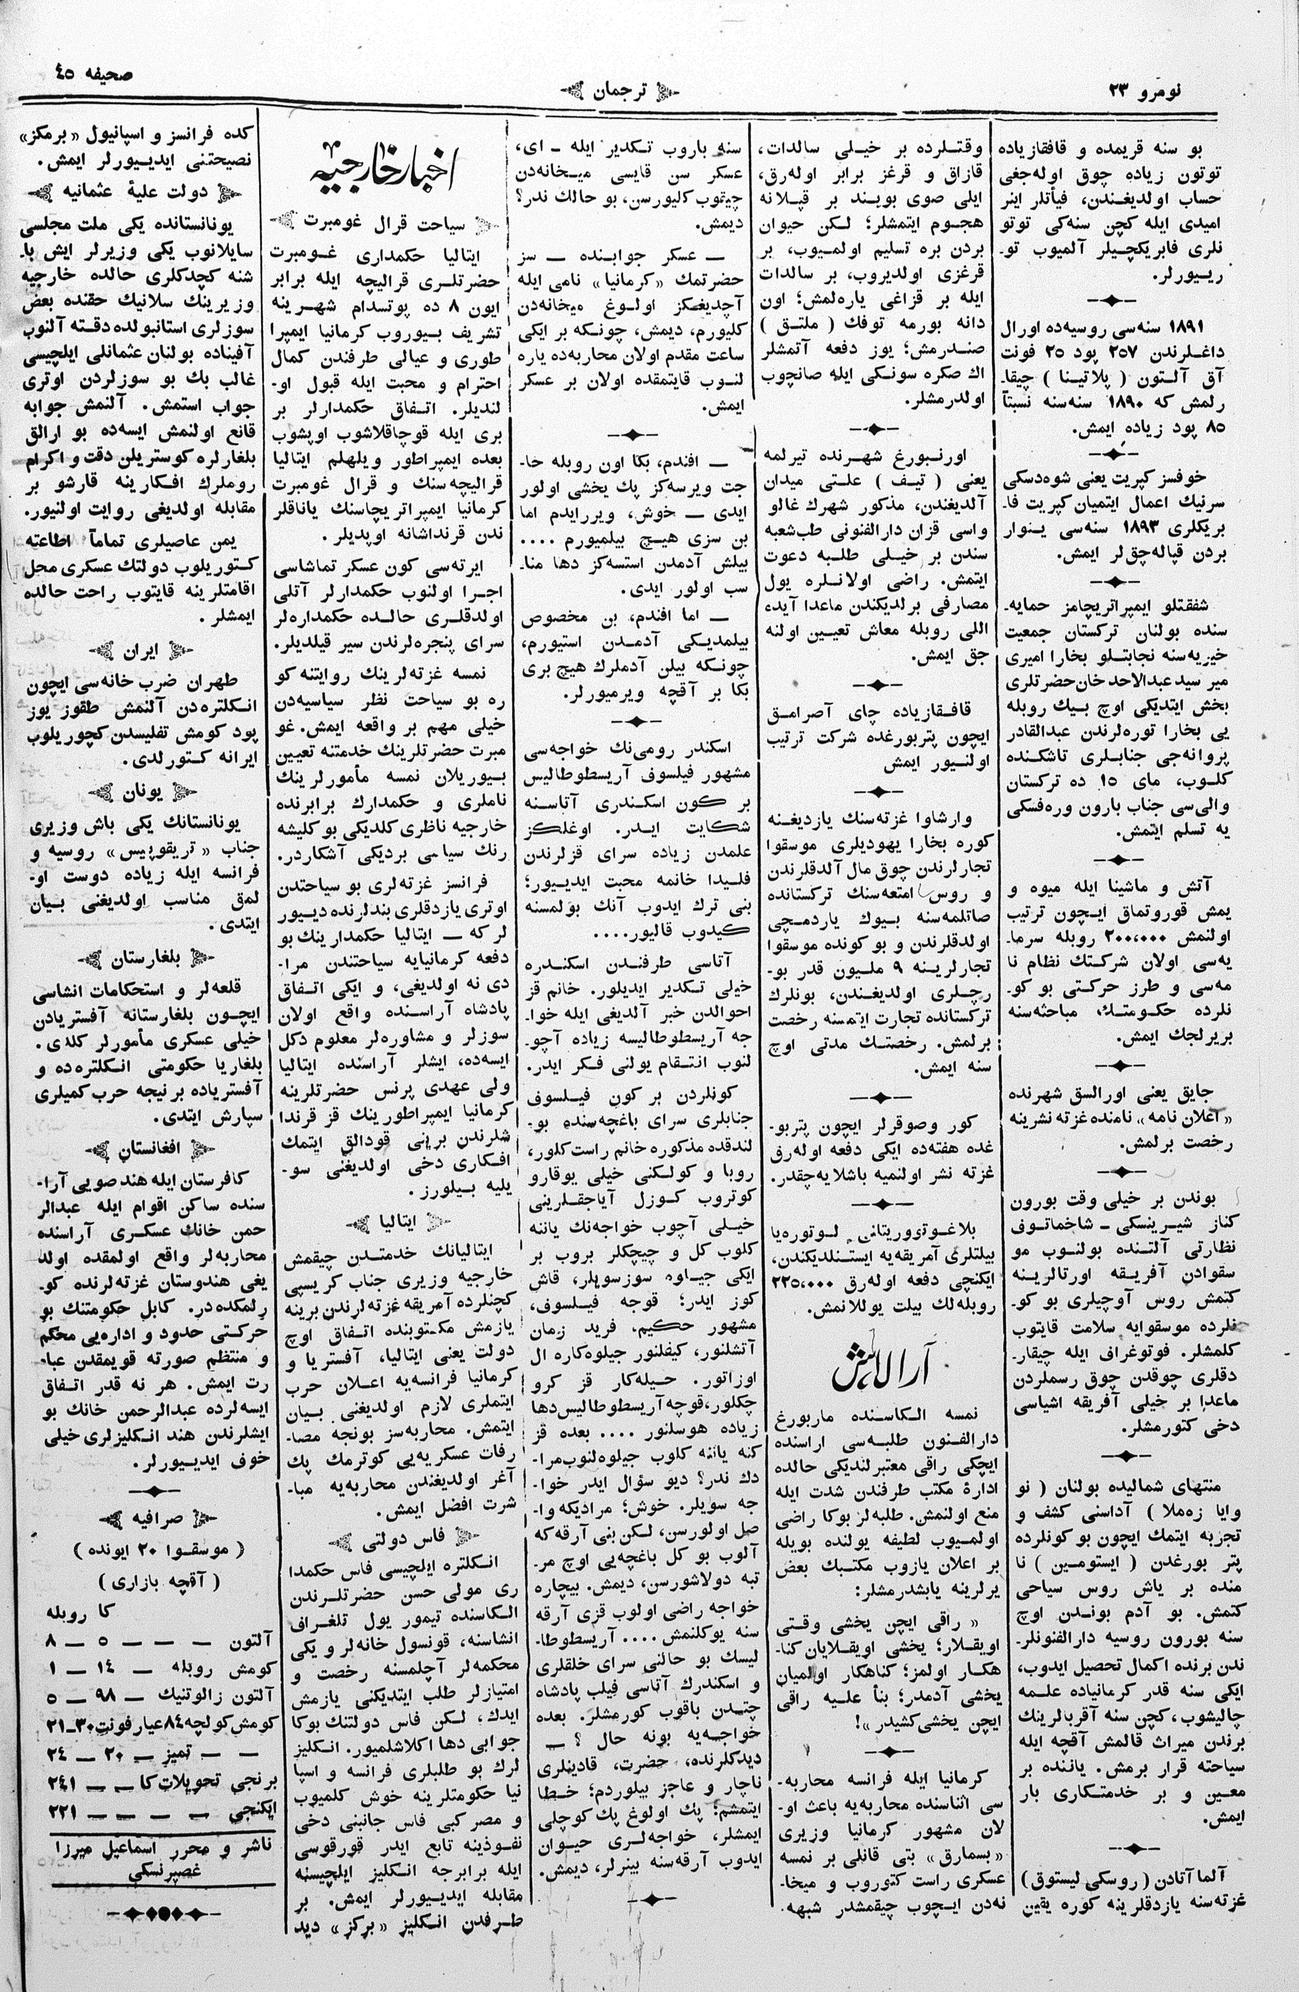 نومرو ٢٣
ترجمان
صحیفه ٤٥
بو سنه قریمده و قافقازیاده
توتون زیاده چوق اوله‌جغی
حساب اولدیغندن، فیأتلر اینر
امیدی ایله کچن سنه‌کی توتو
نلری فابریکچیلر آلمیوب تو-
ریـیورلر.
١٨٩١ سنه‌سی روسیه‌ده اورال
داغلرندن ٢٥٧ پود ٢٥ فونت
آق آلتون ( پلاتینا ) چیقا-
رلمش که ١٨٩٠ سنه‌سنه نسبتاً
٨٥ پود زیاده ایمش.
خوفسز کپریت یعنی شوه‌دسکی
سرنیك اعمال ایتمیان کپریت فا-
بریکلری ١٨٩٣ سنه‌سی ینوار
بردن قپاله‌چق‌لر ایمش.
شفقتلو ایمپراتریچامز حمایه-
سنده بولنان ترکستان جمعیت
خیریه‌سنه نجابتلو بخارا امیری
میر سید عبدالاحد خان حضرتلری
بخش ایتدیکی اوچ بیك روبله
یی بخارا توره‌لرندن عبدالقادر
پروانه‌جی جنابلری تاشکنده
کلوب، مای ١٥ ده ترکستان
والی‌سی جناب بارون وره‌فسکی
یه تسلم ایتمش.
آتش و ماشینا ایله میوه و
یمش قوروتماق ایچون ترتیب
اولنمش ٢٠٠،٠٠٠ روبله سرما-
یه‌سی اولان شرکتك نظام نا
مه‌سی و طرز حرکتی بو کو-
نلرده حکومتك، مباحثه‌سنه
بریرلجك ایمش.
جایق یعنی اورالسق شهرنده
«اعلان نامه» نامنده غزته نشرینه
رخصت برلمش.
بوندن بر خیلی وقت بورون
کناز شیرینسکی - شاخماتوف
نظارتی آلتنده بولنوب مو
سقوادن آفریقه اورتالرینه
کتمش روس آوچیلری بو کو-
نلرده موسقوایه سلامت قایتوب
کلمشلر. فوتوغراف ایله چیقار-
دقلری چوقدن چوق رسملردن
ماعدا بر خیلی آفریقه اشیاسی
دخی کتورمشلر.
منتهای شمالیده بولنان ( نو
وایا زه‌ملا ) آداسنی کشف و
تجزبه ایتمك ایچون بو کونلرده
پتر بورغدن ( ایستومین ) نا
منده بر یاش روس سیاحی
کتمش. بو آدم بوندن اوچ
سنه بورون روسیه دارالفنونلر-
ندن برنده اکمال تحصیل ایدوب،
ایکی سنه قدر کرمانیاده علمه
چالیشوب، کچن سنه آقربالرینك
برندن میراث قالمش آقچه ایله
سیاحته قرار برمش. یاننده بر
معین و بر خدمتکاری بار
ایمش.
آلما آتادن ( روسکی لیستوق )
غزته‌سنه یازدقلرینه کوره یقین
وقتلرده بر خیلی سالدات،
قازاق و قرغز برابر اوله‌رق،
ایلی صوی بویند بر قپلانه
هجوم ایتمشلر؛ لکن حیوان
بردن بره تسلیم اولمیوب، بر
قرغزی اولدیروب، بر سالدات
ایله بر قزاغی یاره‌لمش؛ اون
دانه بورمه توفك ( ملتق )
صندرمش؛ یوز دفعه آتمشلر
اك صکره سونکی ایله صانچوب
اولدرمشلر.
اورنبورغ شهرنده تیرلمه
یعنی ( تیف ) علتی میدان
آلدیغندن، مذکور شهرك غالو
واسی قزان دارالفنونی طب‌شعبه
سندن بر خیلی طلبه دعوت
ایتمش. راضی اولانلره یول
مصارفی برلدیکندن ماعدا آیده
اللی روبله معاش تعیین اولنه
جق ایمش.
قافقازیاده چای آصرامق
ایچون پتربورغده شرکت ترتیب
اولنیور ایمش
وارشاوا غزته‌سنك یازدیغنه
کوره بخارا یهودیلری موسقوا
تجارلرندن چوق مال آلدقلرندن
و روس امتعه‌سنك ترکستانده
صاتلمه‌سنه بیوك یاردمچی
اولدقلرندن و بو کونده موسقوا
تجارلرینه ٩ ملیون قدر بو-
رچلری اولدیغندن، بونلرك
ترکستانده تجارت ایتمسنه رخصت
برلمش. رخصتك مدتی اوچ
سنه ایمش.
کور وصوقرلر ایچون پتربو-
غده هفته‌ده ایکی دفعه اوله‌رق
غزته نشر اولنمیه باشلایه‌چقدر.
بلاغوتووریتانی لوتوره‌یا
بیلتلری آمریقه‌یه ایستنلدیکندن،
ایکنچی دفعه اوله‌رق ٢٢٥،٠٠٠
روبله‌لك بیلت یوللانمش.
آرالاش
نمسه الکاسنده ماربورغ
دارالفنون طلبه‌سی اراسنده
ایچکی راقی معتبرلندیکی حالده
ادارهٔ مکتب طرفندن شدت ایله
منع اولنمش. طلبه‌لر بوکا راضی
اولمیوب لطیفه یولنده بویله
بر اعلان یازوب مکتبك بعض
یرلرینه یابشدرمشلر:
« راقی ایچن یخشی وقتی
اویقلار؛ یخشی اویقلایان کنا-
هکار اولمز؛ کناهکار اولمیان
یخشی آدمدر؛ بنأ علیه راقی
ایچن یخشی‌کشیدر»!
کرمانیا ایله فرانسه محاربه-
سی اثناسنده محاربه‌یه باعث او-
لان مشهور کرمانیا وزیری
«بسمارق» بتی قانلی بر نمسه
عسکری راست کتوروب و میخا-
نه‌دن ایچوب چیقمشدر شبهه.
سنه باروب تکدیر ایله - ای،
عسکر سن قایسی میخانه‌دن
چیقوب کلیورسن، بو حالك ندر؟
دیمش.
— عسکر جوابنده — سز
حضرتمك «کرمانیا» نامی ایله
آچدیغکز اولوغ میخانه‌دن
کلیورم، دیمش، چونکه بر ایکی
ساعت مقدم اولان محاربه‌ده یاره
لنوب قایتمقده اولان بر عسکر
ایمش.
— افندم، بکا اون روبله حا-
جت ویرسه‌کز پك یخشی اولور
ایدی — خوش، ویررایدم اما
بن سزی هیچ بیلمیورم ....
بیلش آدمدن استسه‌کز دها منا-
سب اولور ایدی.
— اما افندم، بن مخصوص
بیلمدیکی آدمدن استیورم،
چونکه بیلن آدملرك هیچ بری
بکا بر آقچه ویرمیورلر.
اسکندر رومی‌نك خواجه‌سی
مشهور فیلسوف آریسطوطالیس
بر کون اسکندری آتاسنه
شکایت ایدر. اوغلکز
علمدن زیاده سرای قزلرندن
فلیدا خانمه محبت ایدییور؛
بنی ترك ایدوب آنك بولمسنه
کیدوب قالیور....
آتاسی طرفندن اسکندره
خیلی تکدیر ایدیلور. خانم قز
احوالدن خبر آلدیغی ایله خوا-
جه آریسطوطالیسه زیاده آچو-
لنوب انتقام یولنی فکر ایدر.
کونلردن بر کون فیلسوف
جنابلری سرای باغچه‌سنده بو-
لندقده مذکوره خانم راست‌کلور،
روبا و کولکنی خیلی یوقارو
کوتروب کوزل آیاجقلرینی
خیلی آچوب خواجه‌نك یاننه
کلوب کل و چیچکلر بروب بر
ایکی جیاوه سوزسویلر، قاش
کوز ایدر؛ قوجه فیلسوف،
مشهور حکیم، فرید زمان
آتشلنور، کیفلنور جیلوه‌کاره ال
اوزاتور. حیله‌کار قز کرو
چکلور، قوجه آریسطوطالیس‌دها
زیاده هوسلنور .... بعده قز
کنه یاننه کلوب جیلوه‌لنوب‌مرا-
دك ندر؟ دیو سؤال ایدر خوا-
جه سویلر. خوش؛ مرادیکه وا-
صل اولورسن، لکن بنی آرقه‌که
آلوب بو کل باغچه‌یی اوچ مر-
تبه دولاشورسن، دیمش. بیچاره
خواجه راضی اولوب قزی آرقه
سنه یوکلنمش .... آریسطوطا-
لیسك بو حالنی سرای خلقلری
و اسکندرك آتاسی فیلب پادشاه
چتدن باقوب کورمشلر. بعده
خواجه‌یه بونه حال ؟ —
دیدکلرنده، حضرت، قادینلری
ناچار و عاجز بیلوردم؛ خطا
ایتمشم؛ پك اولوغ پك کوچلی
ایمشلر، خواجه‌لری حیوان
ایدوب آرقه‌سنه بینرلر، دیمش.
اخبار خارجیه
سیاحت قرال غومبرت
ایتالیا حکمداری غومبرت
حضرتلری قرالیچه ایله برابر
ایون ٨ ده پوتسدام شهرینه
تشریف بیوروب کرمانیا ایمپرا
طوری و عیالی طرفندن کمال
احترام و محبت ایله قبول او-
لندیلر. اتفاق حکمدارلر بر
بری ایله قوچاقلاشوب اوپشوب
بعده ایمپراطور ویلهلم ایتالیا
قرالیچه‌سنك و قرال غومبرت
کرمانیا ایمپراتریچاسنك یاناقلر
ندن قرنداشانه اوپدیلر.
ایرته‌سی کون عسکر تماشاسی
اجرا اولنوب حکمدارلر آتلی
اولدقلری حالده حکمداره‌لر
سرای پنجره‌لرندن سیر قیلدیلر.
نمسه غزته‌لرینك روایتنه کو
ره بو سیاحت نظر سیاسیه‌دن
خیلی مهم بر واقعه ایمش. غو
مبرت حضرتلرینك خدمتنه تعیین
بیوریلان نمسه مأمورلرینك
ناملری و حکمدارك برابرنده
خارجیه ناظری کلدیکی بو کلیشه
رنك سیاسی بردیکی آشکاردر.
فرانسز غزته‌لری بو سیاحتدن
اوتری یازدقلری بندلرنده دییور
لرکه — ایتالیا حکمدارینك بو
دفعه کرمانیایه سیاحتندن مرا-
دی نه اولدیغی، و ایکی اتفاق
پادشاه آراسنده واقع اولان
سوزلر و مشاوره‌لر معلوم دکل
ایسه‌ده، ایشلر آراسنده ایتالیا
ولی عهدی پرنس حضرتلرینه
کرمانیا ایمپراطورینك قز قرندا
شلرندن برینی قودالق ایتمك
افکاری دخی اولدیغنی سو-
یلیه بیلورز.
ایتالیا
ایتالیانك خدمتدن چیقمش
خارجیه وزیری جناب کریسپی
کچنلرده آمریقه غزته‌لرندن برینه
یازمش مکتوبنده اتفاق اوچ
دولت یعنی ایتالیا، آفستریا و
کرمانیا فرانسه‌یه اعلان حرب
ایتملری لازم اولدیغنی بیان
ایتمش. محاربه‌سز بونجه مصا-
رفات عسکریه‌یی کوترمك پك
آغر اولدیغندن محاربه‌یه مبا-
شرت افضل ایمش.
فاس دولتی
انکلتره ایلچیسی فاس حکمدا
ری مولی حسن حضرتلرندن
الکاسنده تیمور یول تلغراف
انشاسنه، قونسول خانه‌لر و یکی
محکمه‌لر آچلمسنه رخصت و
امتیازلر طلب ایتدیکنی یازمش
ایدك، لکن فاس دولتنك بوکا
جوابی دها اکلاشلمیور. انکلیز
لرك بو طلبلری فرانسه و اسپا
نیا حکومتلرینه خوش کلمیوب
و مصر کبی فاس جانبنی دخی
نفوذینه تابع ایدر قورقوسی
ایله برابرجه انکلیز ایلچیسنه
مقابله ایدییورلر ایمش. بر
طرفدن انکلیز «برکز» دید
کده فرانسز و اسپانیول «برمکز»
نصیحتنی ایدییورلر ایمش.
دولت علیهٔ عثمانیه
یونانستانده یکی ملت مجلسی
سایلانوب یکی وزیرلر ایش با-
شنه کچدکلری حالده خارجیه
وزیرینك سلانیك حقنده بعض
سوزلری استانبولده دقته آلنوب
آفیناده بولنان عثمانلی ایلچیسی
غالب بك بو سوزلردن اوتری
جواب استمش. آلنمش جوابه
قانع اولنمش ایسه‌ده بو ارالق
بلغارلره کوستریلن دقت و اکرام
روملرك افکارینه قارشو بر
مقابله اولدیغی روایت اولنیور.
یمن عاصیلری تماماً اطاعته
کتوریلوب دولتك عسکری محل
اقامتلرینه قایتوب راحت حالده
ایمشلر.
ایران
طهران ضرب خانه‌سی ایچون
انکلتره‌دن آلنمش طقوز یوز
پود کومش تفلیسدن کچوریلوب
ایرانه کتورلدی.
یونان
یونانستانك یکی باش وزیری
جناب «تریقوپیس» روسیه و
فرانسه ایله زیاده دوست او-
لمق مناسب اولدیغنی بیان
ایتدی.
بلغارستان
قلعه‌لر و استحکامات انشاسی
ایچون بلغارستانه آفستریادن
خیلی عسکری مأمورلر کلدی.
بلغاریا حکومتی انکلتره‌ده و
آفستریاده بر نیجه حرب کمیلری
سپارش ایتدی.
افغانستان
کافرستان ایله هند صویی آرا-
سنده ساکن اقوام ایله عبدالر
حمن خانك عسکری آراسنده
محاربه‌لر واقع اولمقده اولد
یغی هندوستان غزته‌لرنده کو-
رلمکده‌در. کابل حکومتنك بو
حرکتی حدود و اداره‌یی محکم
و منتظم صورته قویمقدن عبا-
رت ایمش. هر نه قدر اتفاق
ایسه‌لرده عبدالرحمن خانك بو
ایشلرندن هند انکلیزلری خیلی
خوف ایدییورلر.
صرافیه
( موسقوا ٢٠ ایونده )
( آقچه بازاری )
کا روبله
آلتون — — — ٥ — ٨
کومش روبله — ١٤ — ١
آلتون زالوتنیك — ٩٨ — ٥
کومش‌کولچه ٨٤ عیار فونت ٣٠-٢١
— — تمیز — ٢٠ — ٢٤
برنجی تحویلات‌کا — — ٢٤١
ایکنجی — — — — ٢٢١
ناشر و محرر اسماعیل میرزا
غصپرنسکی